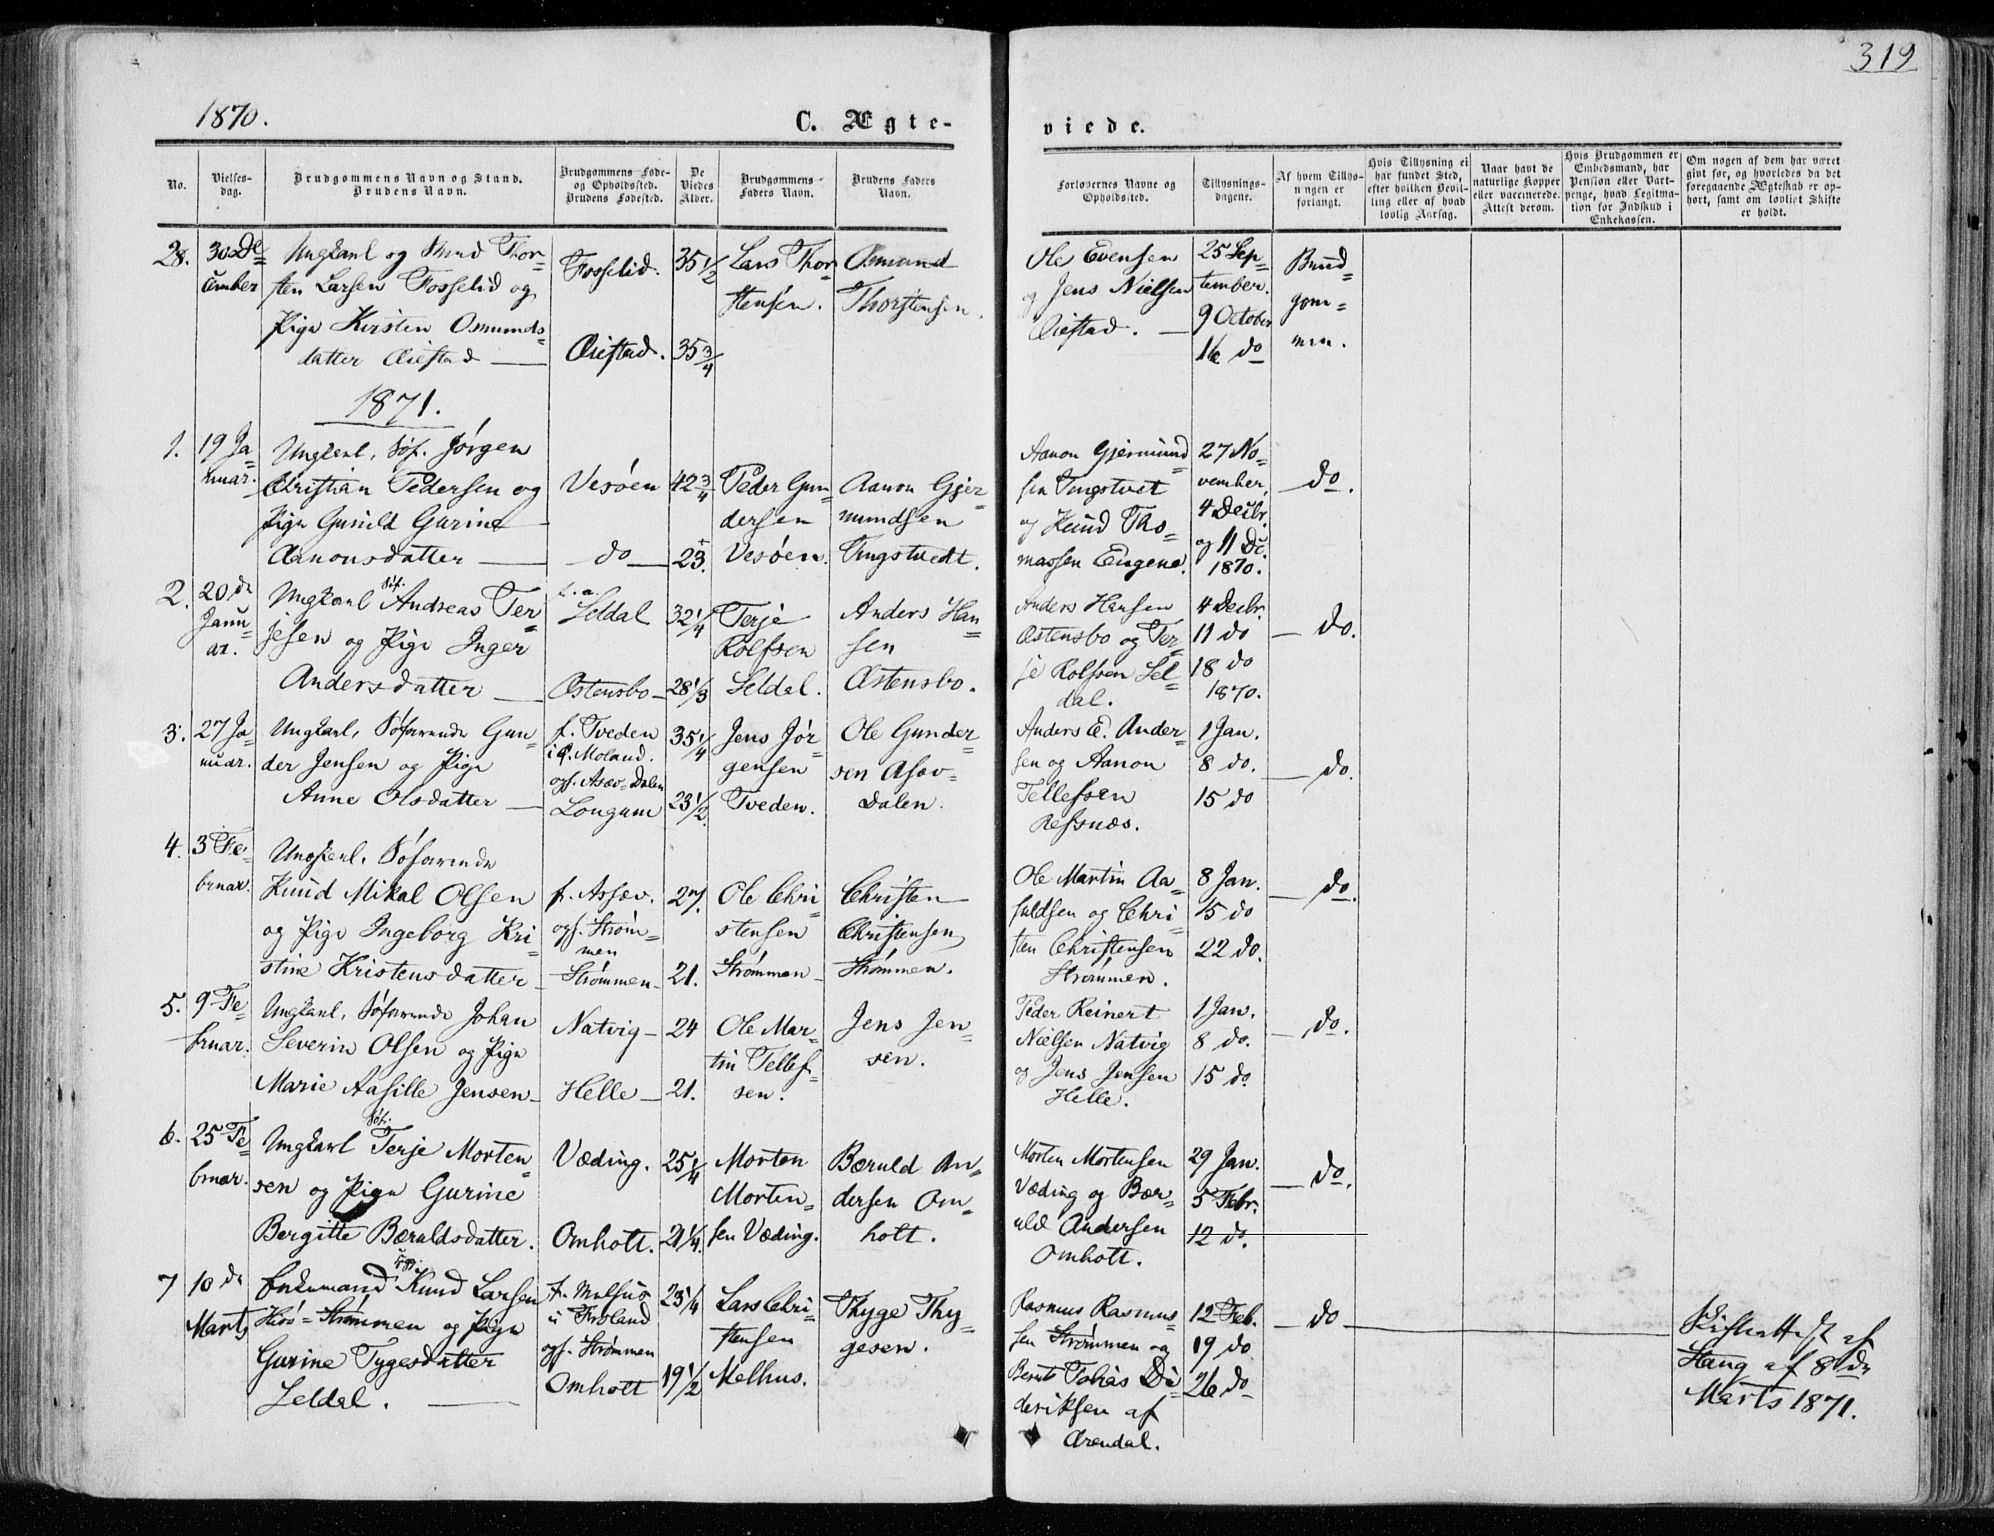 319
1870.
C. Ægte-
viede.
No.
Vielses-
dag.
Brudgommens Navn og Stand.
Brudens Navn.
Brudgommens Føde-
og Opholdssted.
Brudens Fødested.
De
Viedes
Alder.
Brudgommens
Faders Navn.
Brudens Faders
Navn.
Forlovernes Navne og
Opholdssted.
Tillysnings-
dagene.
Af hvem Tillys-
ningen er
forlangt.
Hvis Tillysning ei
har fundet Sted,
efter hvilken Bevil-
ling eller af hvad
lovlig Aarsag.
Naar havt de
naturlige Kopper
eller vaccinerede.
Attest derom.
Hvis Brudgommen er
Embedsmand, har
Pension eller Vart-
penge, hvad Legitma-
tion for Indskud i
Enkekassen.
Om nogen af dem har været
givt før, og hvorledes da det
foregaaende Ægteskab er op-
hørt, samt om lovligt Skifte
er holdt.
28.
30 De
cember
Ungkarl og Thor-
sten Larsen Fosselid og
Pige Kirsten Osmunds-
datter Øiestad
Fosselid.
Øiestad.
35 1/2
35 3/4
Lars Thor-
stensen.
Osmund
Thorstensen.
Ole Evensen
og Jens Nielsen
Øiestad.
25 Sep-
tember.
9 October
16 do
Brud-
gom-
men.
1871.
1.
19 Ja-
nuar.
Ungkarl, Søf. Jørgen
Christian Pedersen og
Pige Gunild Gurine
Aanonsdatter
Vesøen
do
42 3/4
23.
Peder Gun-
dersen
Vesøen.
Aanon Gjer-
mundsen
Tingstvedt.
Aanon Gjermund-
sen Tingstvet
og Knud Tho-
massen Eugene.
27 No-
vember,
4 Decbr.
og 11 Dc.
1870.
do.
2.
20 de
Janu-
ar.
Ungkarl Søf. Andreas Ter-
jesen og Pige Inger
Andersdatter
f. o.
Seldal
Østensbo
32 1/4
28 1/3
Terje
Rolfsen
Seldal.
Anders Han-
sen
Østensbo.
Anders Hansen
Østensbo og Ter-
je Rolfsen Sel-
dal.
4 Decbr.
11 do
18 do
1870.
do.
3.
27 Ja-
nuar.
Ungkarl, Søfarende Gun-
der Jensen og Pige
Anne Olsdatter
f. Tveden
i Ø. Moland.
opf. Asæv-Dalen
Longum
35 1/4
23 1/2.
Jens Jør-
gensen
Tveden.
Ole Gunder-
sen Asæv-
dalen.
Anders E. Ander-
sen og Aanon
Tellefsen
Refsnæs.
1 Jan.
8 do.
15 do
do.
4.
3 Fe-
bruar.
Ungkarl, Søfarende
Knud Mikal Olsen
og Pige Ingeborg Kri-
stine Kristensdatter
f. Assæv.
opf. Strøm-
men
Strømmen
27.
21.
Ole Chri-
stensen
Strømmen
Christen
Christensen
Strømmen.
Ole Martin Aa-
suldsen og Chri-
sten Christensen
Strømmen.
8 Jan.
15 do
22 do.
do.
5.
9 Fe-
bruar.
Ungkarl, Søfarende Johan
Severin Olsen og Pige
Marie Aasille Jensen
Natvig
Helle
24
21.
Ole Mar-
tin Tellef-
sen.
Jens Jen-
sen.
Peder Reinert
Nielsen Natvig
og Jens Jensen
Helle.
1 Jan.
8 do.
15 do.
do.
6.
25 Fe-
bruar.
Ungkarl Søf. Terje Morten-
sen og Pige Gurine
Bergitte Bæruldsdatter.
Væding.
Omholt.
25 1/4
21 1/4.
Morten
Morten-
sen Væding.
Bæruld An-
dersen Om-
holt.
Morten Mortensen
Væding og Bær-
uld Andersen
Omholt.
29 Jan.
5 Febr.
12 do.
do.
7
10 de
Marts
Enkemand Knud Larsen
Hisø-Strømmen og Pige
Gurine Tygesdatter
Seldal.
f.
i Froland
opf. Strømmen
Omholt
23 1/4
19 1/2
Lars Chri-
stensen
Melhus.
Thyge Thy-
gesen.
Rasmus Rasmus-
sen Strømmen og
Bernt Tobias Di-
deriksen af
Arendal.
12 Feb.
19 do
26 do
do
Skifteattest af
Stang af 8 de
Marts 1871.